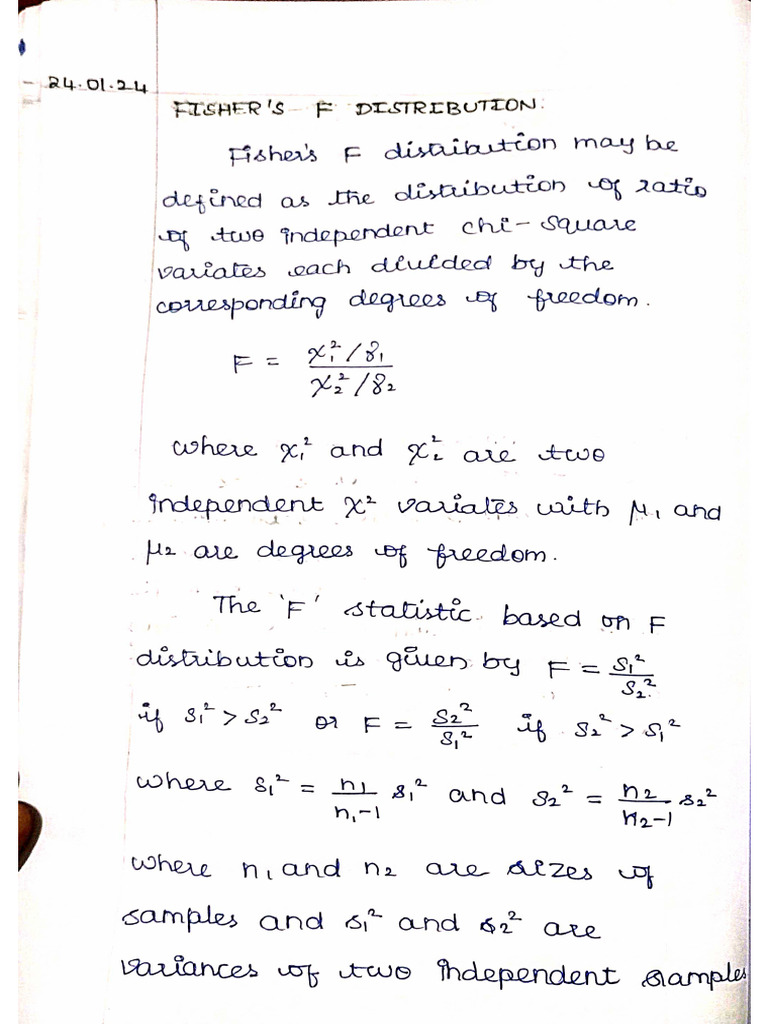 24.01.24
FISHER'S F DISTRIBUTION.
Fisher's F distribution may be
defined as the distribution of ratio
of two independent chi-square
variates each divided by the
corresponding degrees of freedom.
F = (χ₁²/γ₁)/(χ₂²/γ₂)
where χ₁² and χ₂² are two
independent χ² variates with μ₁ and
μ₂ are degrees of freedom.
The 'F' statistic based on F
distribution is given by F = S₁²/S₂²
if S₁² > S₂² or F = S₂²/S₁² if S₂² > S₁²
where S₁² = n₁/(n₁-1) s₁² and S₂² = n₂/(n₂-1) s₂²
where n₁ and n₂ are sizes of
samples and s₁² and s₂² are
variances of two independent samples